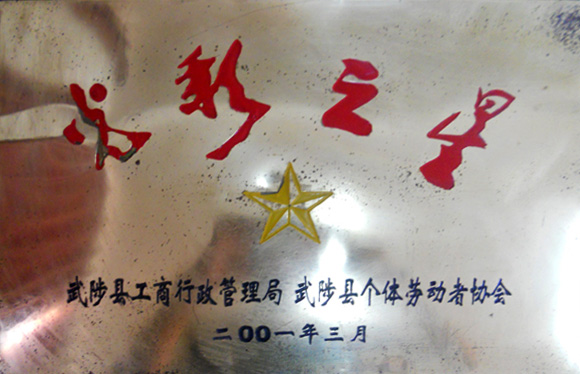 光彩之星
武陟县工商行政管理局 武陟县个体劳动者协会
二〇〇一年三月